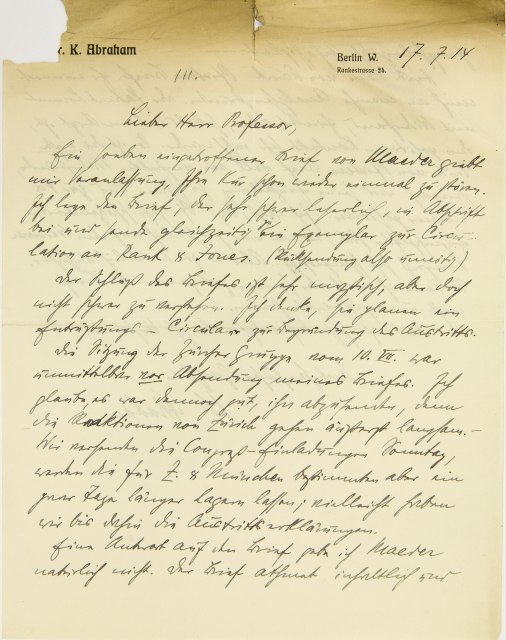 r. K. Abraham
Berlin W. 17. 7. 14
Rankestrasse 24.
111.
Lieber Herr Professor,
Ein soeben eingetroffener Brief von Maeder giebt
mir Veranlassung, Ihre Kur schon wieder einmal zu stören.
Ich lege den Brief, der sehr schwer leserlich, in Abschrift
bei und sende gleichzeitig ein Exemplar zur Circu-
lation an Rank & Jones. (Rücksendung also unnötig)
Der Schluß des Briefes ist sehr mystisch, aber doch
nicht schwer zu verstehen. Ich denke, sie planen ein
Entrüstungs-Circular zur Begründung des Austritts.
Die Sitzung der Züricher Gruppe vom 10. VII. war
unmittelbar vor Absendung meines Briefes. Ich
glaube, es war dennoch gut, ihn abzusenden, denn
die Reaktionen von Zürich gehen äußerst langsam. –
Wir versenden die Congreß-Einladungen Sonntag,
werden die für Z. & München bestimmten aber ein
paar Tage länger lagern lassen; vielleicht haben
wir bis dahin die Austrittserklärungen.
Eine Antwort auf den Brief gebe ich Maeder
natürlich nicht. Der Brief athmet inhaltlich und